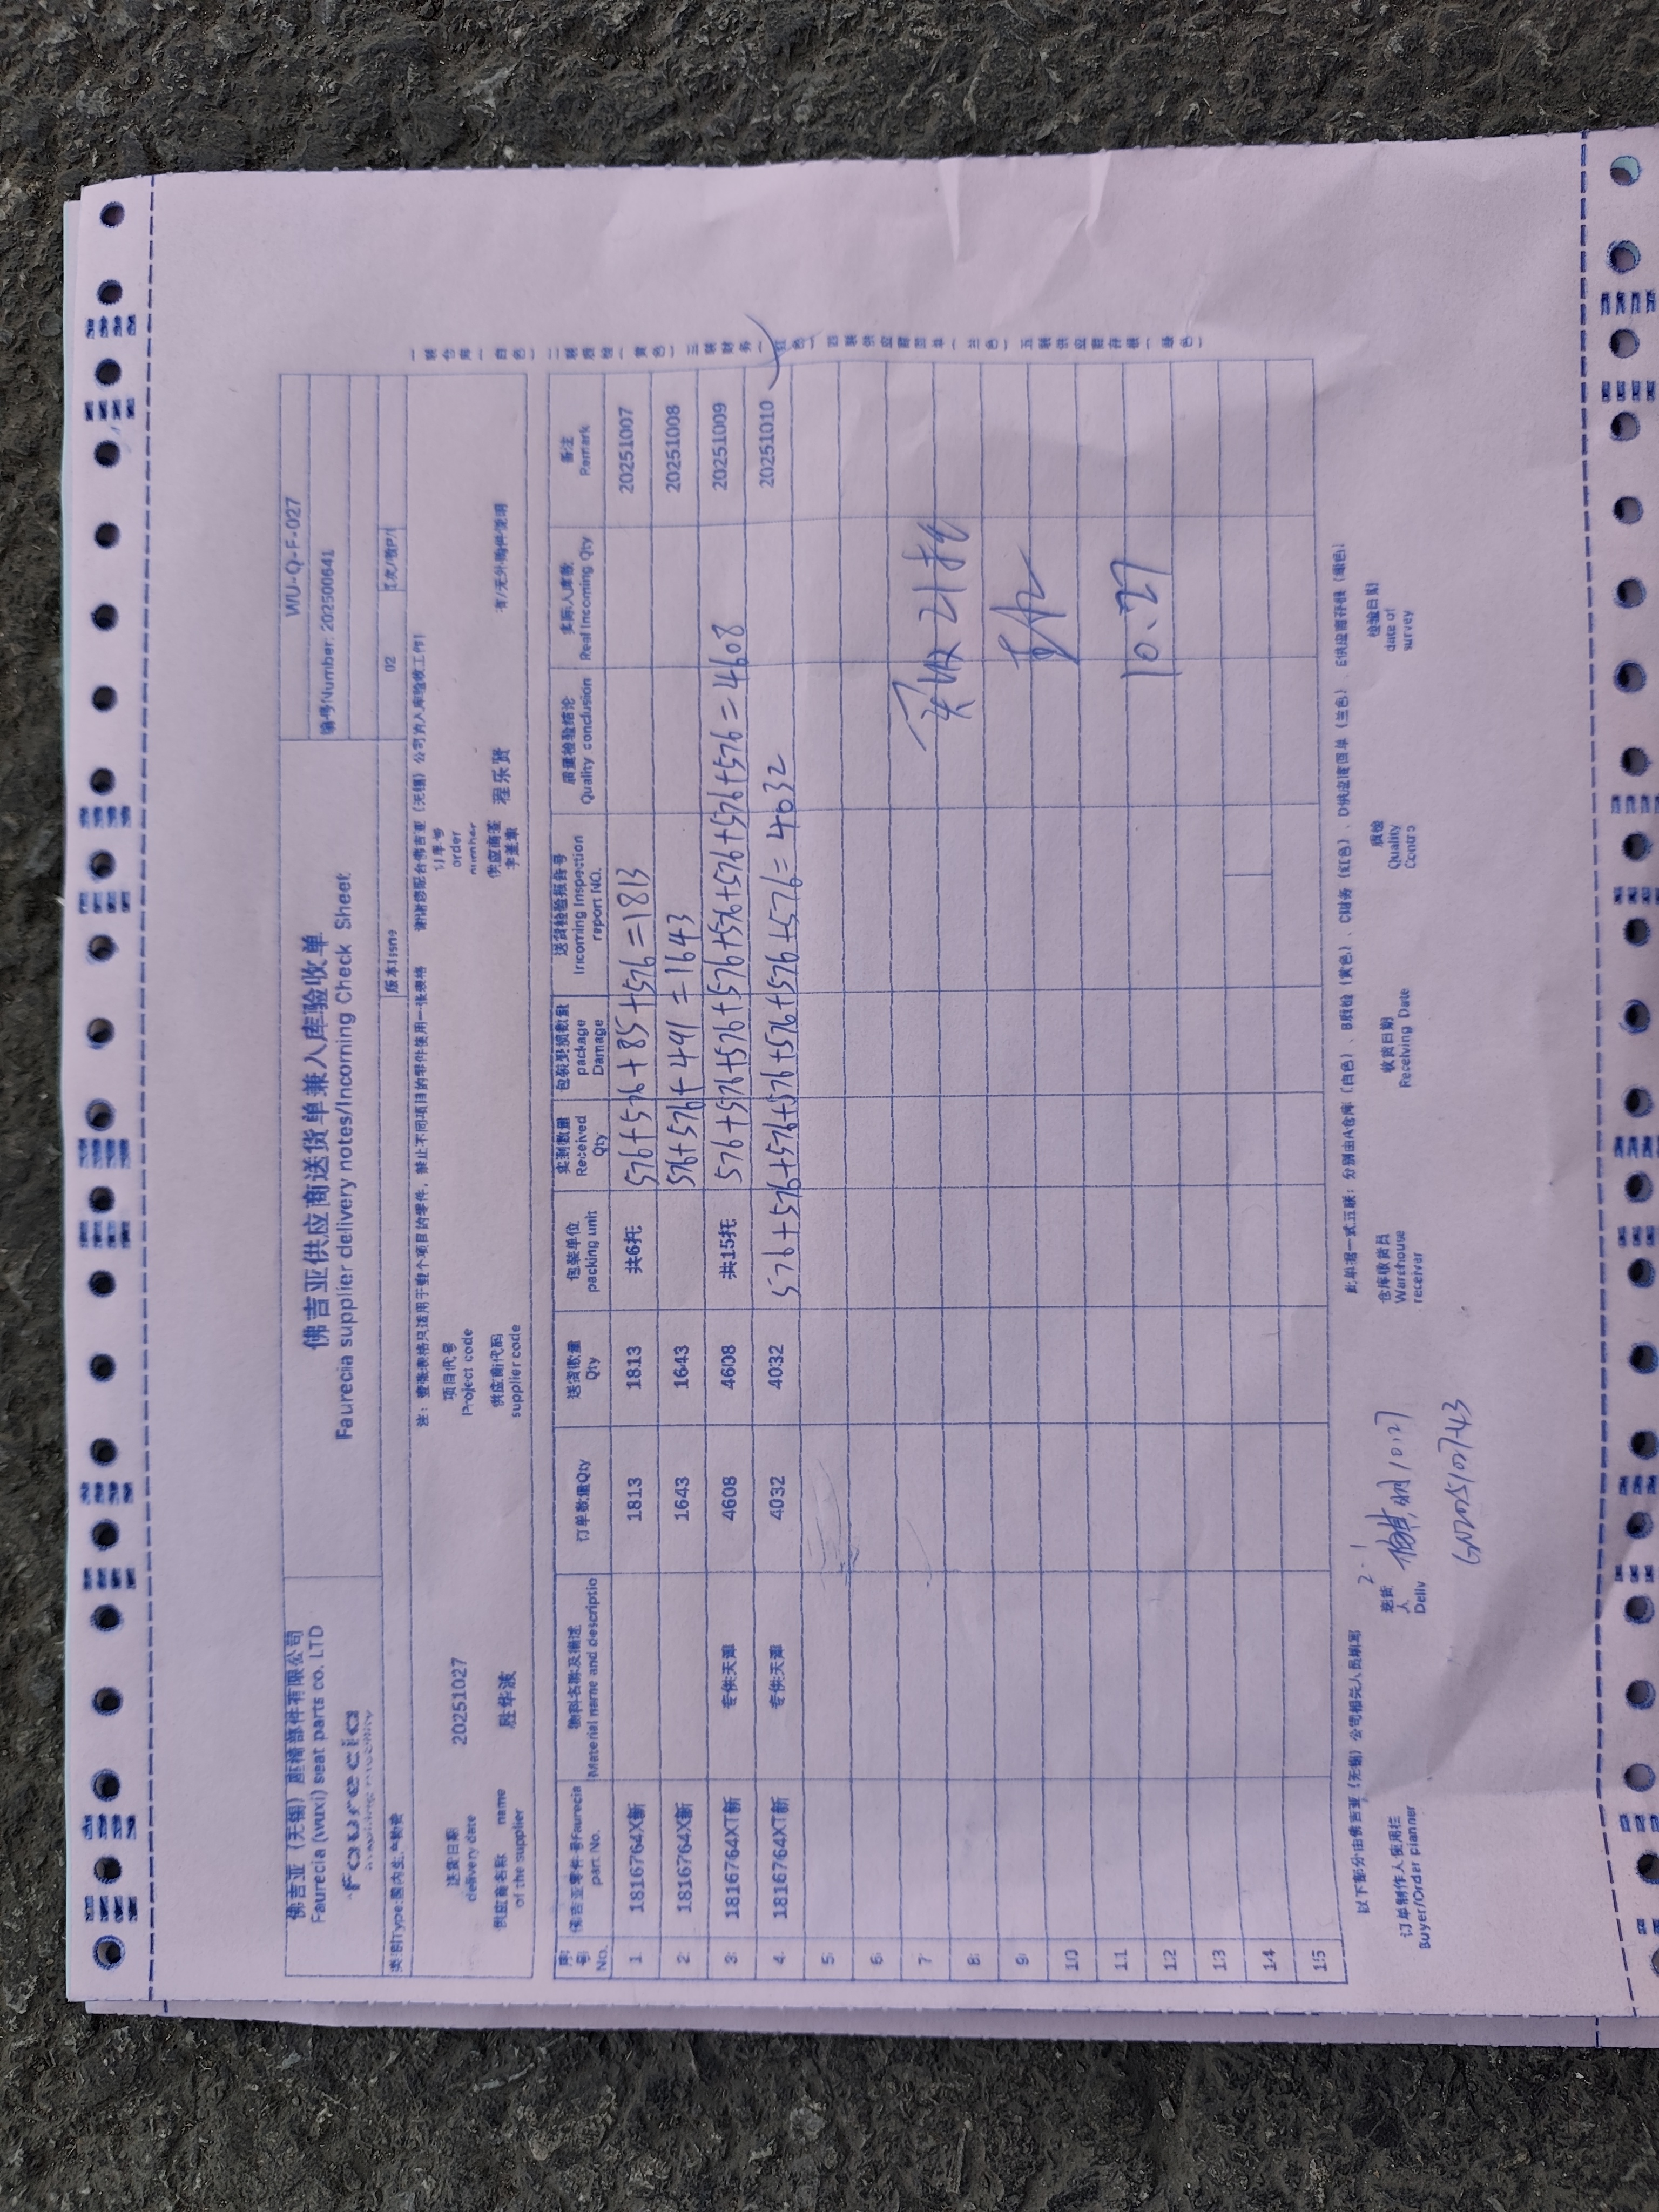 佛吉亚（无锡）座椅部件有限公司
Faurecia (wuxi) seat parts co. LTD
faurecia
佛吉亚供应商送货单兼入库验收单
Faurecia supplier delivery notes/Incoming Check Sheet
WU-Q-F-027
编号Number: 202500641
类别Type:国内生产物资
版本Issue
02
注：壹张表格只适用于壹个项目的零件，禁止不同项目的零件使用一张表格 谢谢您配合佛吉亚（无锡）公司的入库验收工作!
送货日期
delivery date
20251027
项目代号
Project code
订单号
order
number
供应商名称 name
of the supplier
胜华波
供应商代码
supplier code
程乐贤
序号 No.
佛吉亚零件号Faurecia part No.
物料名称及描述 Material name and descriptio
订单数量Qty
送货数量 Qty
包装单位 packing unit
实测数量 Received Qty
包装受损数量 package Damage
送货检验报告号 Incoming Inspection report NO.
质量检验结论 Quality conclusion
实际入库数 Real Incoming Qty
备注 Remark
1 1816764X新 1813 1813 共6托 576+576+85+576=1813 20251007
2 1816764X新 1643 1643 576+576+491=1643 20251008
3 1816764XT新 专供天津 4608 4608 共15托 576+576+576+576+576+576+576+576=4608 20251009
4 1816764XT新 专供天津 4032 4032 576+576+576+576+576+576+576=4032 20251010
5
6
7
实收21托
8
9
10
11
10.27
12
13
14
15
以下部分由佛吉亚（无锡）公司相关人员填写
此单据一式五联：分别由A仓库（白色）、B质检（黄色）、C财务（红色）、D供应商回单（兰色）、E供应商存根（绿色）
订单制作人使用栏
Buyer/Order planner
送货人
Deliv
10.27
仓库收货员
Warehouse
receiver
收货日期
Receiving Date
质检
Quality
Contro
检验日期
date of
survey